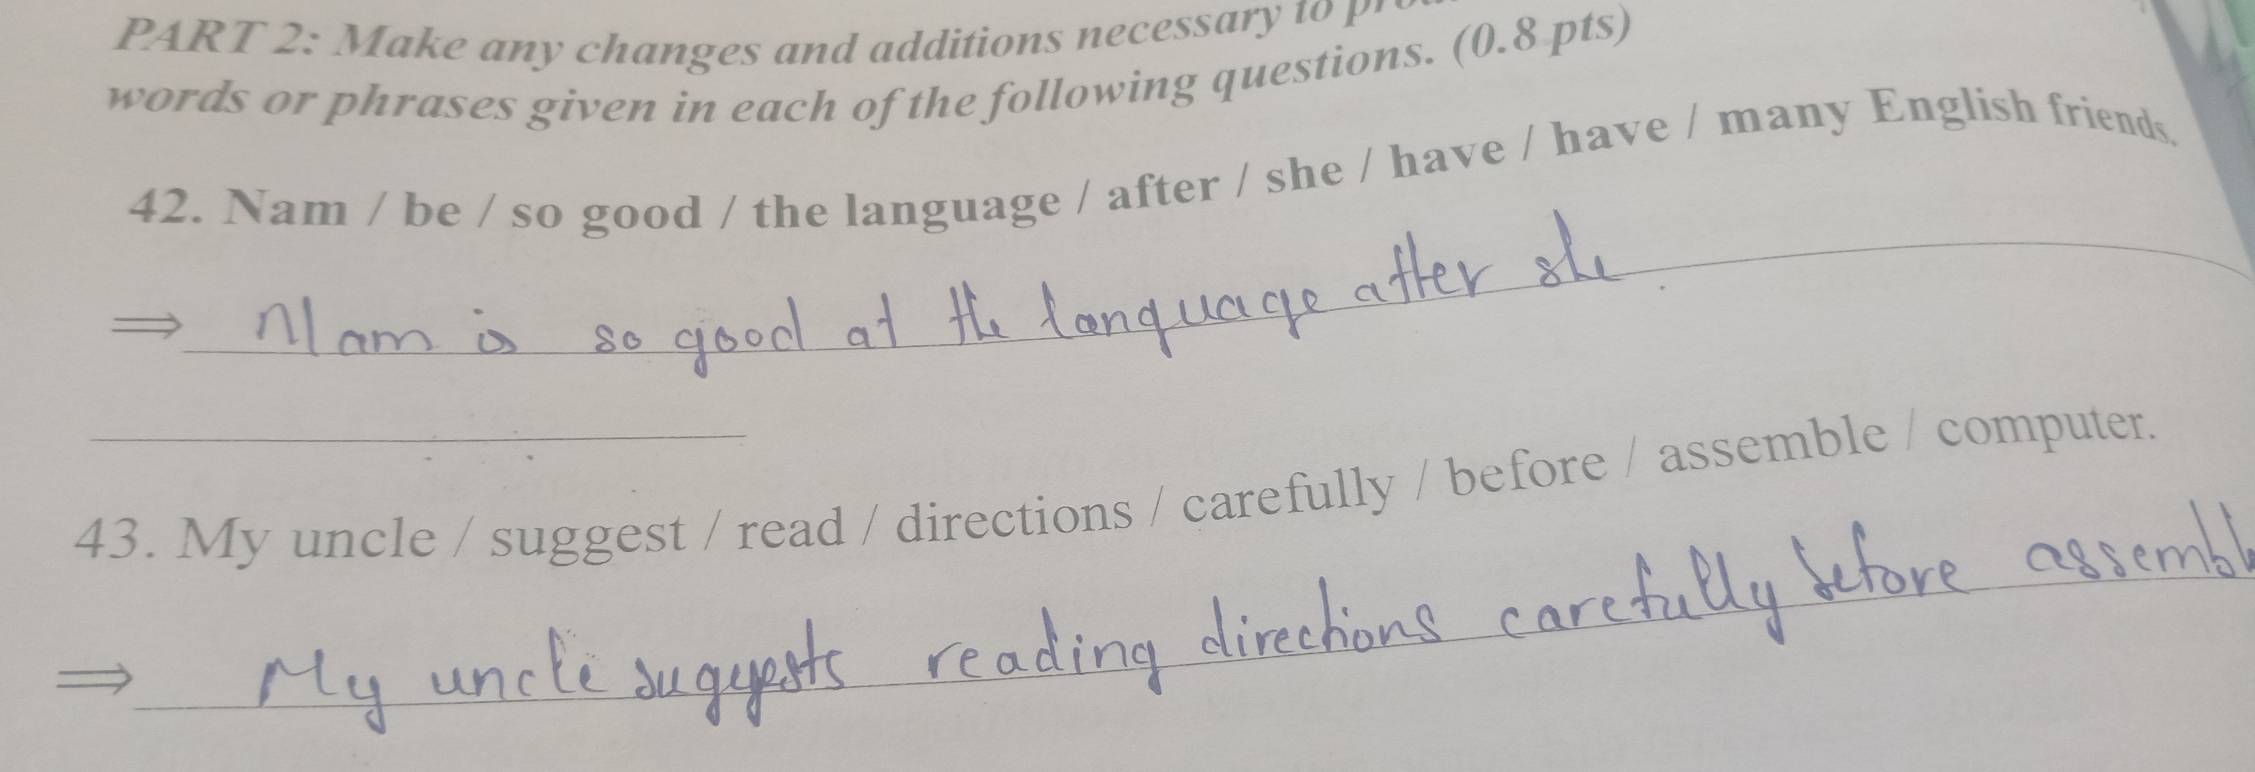 PART 2: Make any changes and additions necessary to
words or phrases given in each of the following questions. (0.8 pts)
42. Nam / be / so good / the language / after / she / have / have / many English friends.
⇒ Nam is so good at the language after she
43. My uncle / suggest / read / directions / carefully / before / assemble / computer.
⇒ My uncle suggests reading directions carefully before